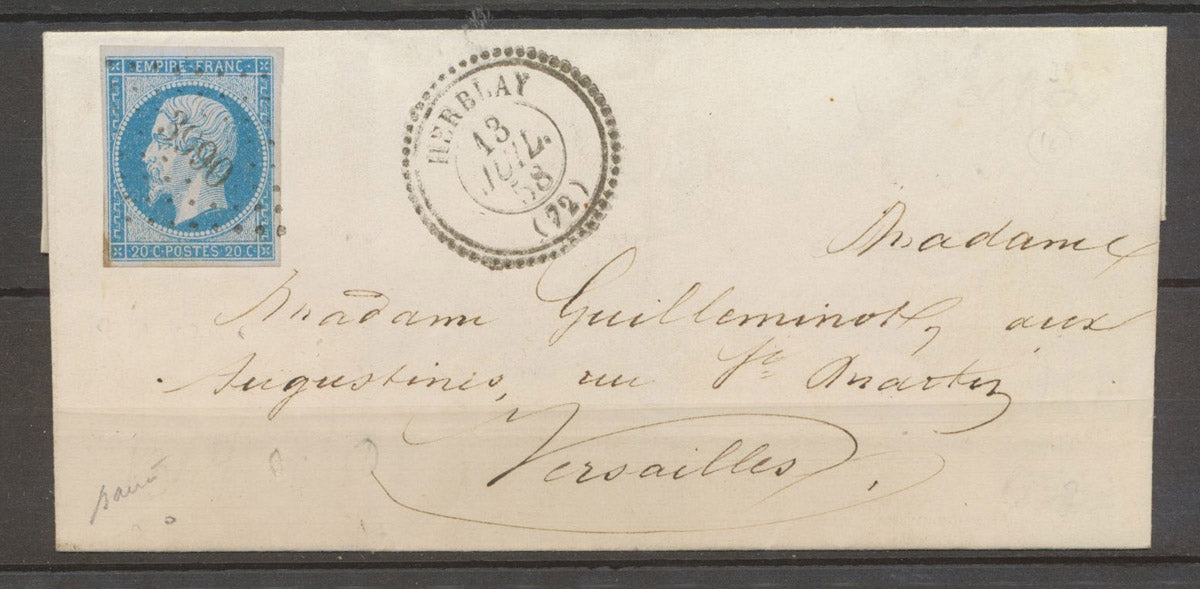 EMPIRE FRANC.
3990
20 C. POSTES 20 C.
HERBLAY
13
JUIL.
58
(72)
Madame
Madame Guilleminot, aux
Augustines, rue St. Martin
Versailles.